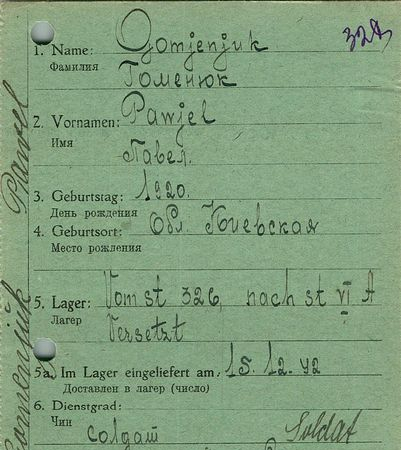 324
1. Name: Gomjenjuk
Фамилия Гоменюк
2. Vornamen: Pawjel
Имя Павел.
3. Geburtstag: 1920.
День рождения
4. Geburtsort: Обл. Киевская
Место рождения
5. Lager: Vom st 326, nach st VI A
Лагер Versetzt
5a. Im Lager eingeliefert am: 15.12.42
Доставлен в лагер (число)
6. Dienstgrad:
Чин солдат Soldat
Pawel